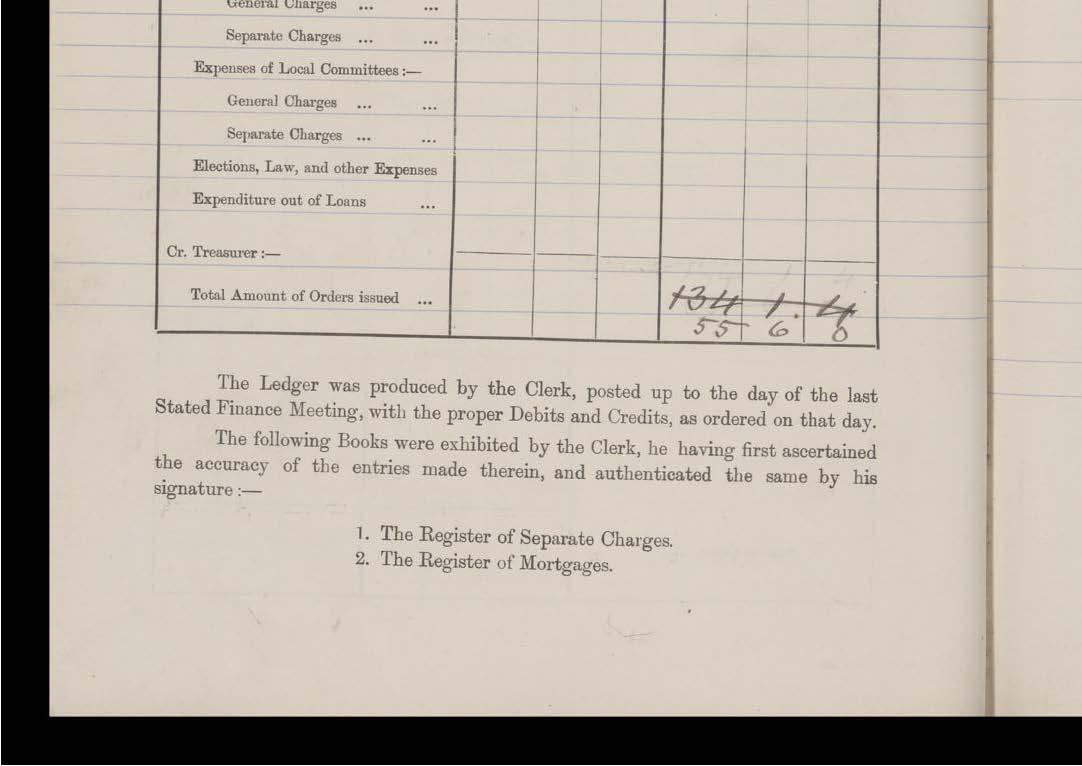 General Charges ... ...
Separate Charges ... ...
Expenses of Local Committees :—
General Charges ... ...
Separate Charges ... ...
Elections, Law, and other Expenses
Expenditure out of Loans ...
Cr. Treasurer :—
Total Amount of Orders issued ... 134 1. 4
55 6 0
The Ledger was produced by the Clerk, posted up to the day of the last
Stated Finance Meeting, with the proper Debits and Credits, as ordered on that day.
The following Books were exhibited by the Clerk, he having first ascertained
the accuracy of the entries made therein, and authenticated the same by his
signature :—
1. The Register of Separate Charges.
2. The Register of Mortgages.